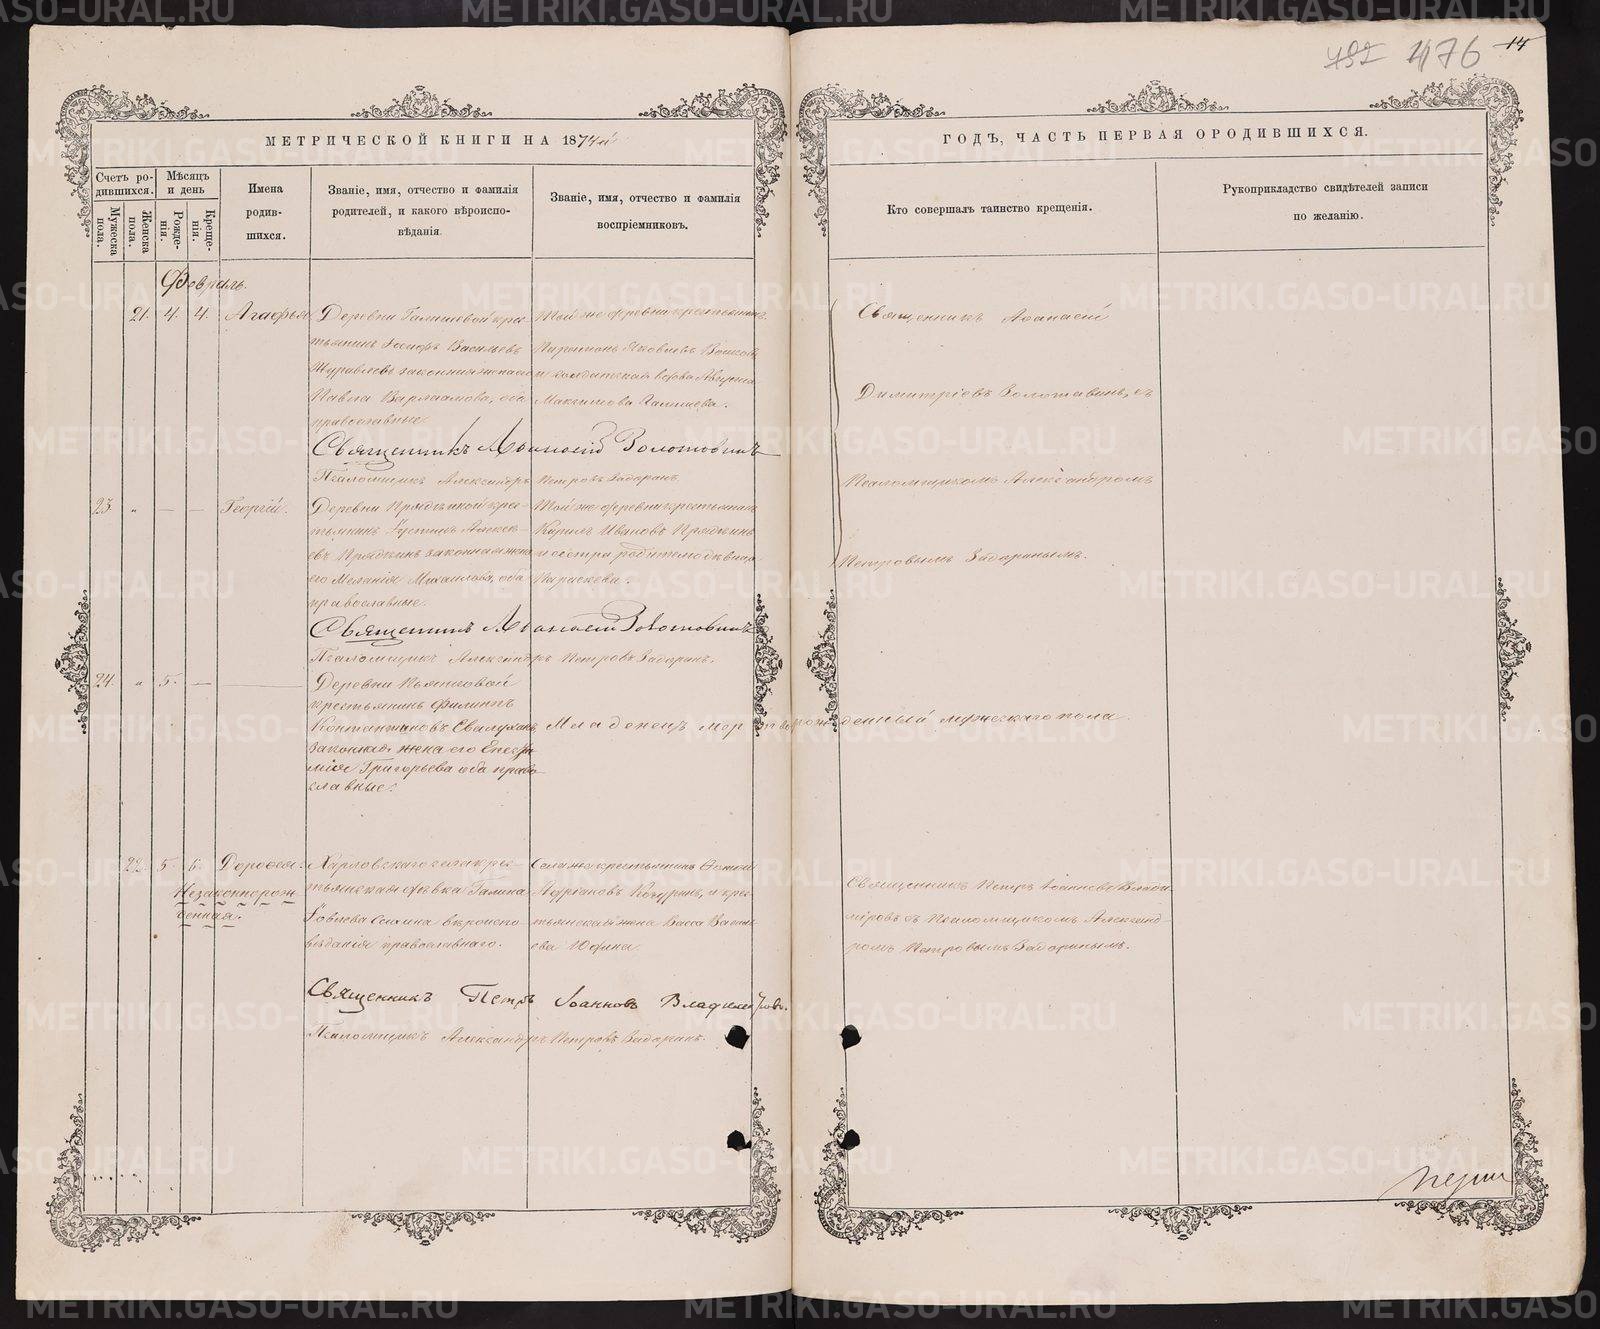 476 14
МЕТРИЧЕСКОЙ КНИГИ НА 1874й
ГОДЪ, ЧАСТЬ ПЕРВАЯ О РОДИВШИХСЯ.
Счетъ родившихся.
Мужеска пола.
Женска пола.
Мѣсяцъ и день
Рожденія.
Крещенія.
Имена родившихся.
Званіе, имя, отчество и фамилія родителей, и какого вѣроисповѣданія.
Званіе, имя, отчество и фамилія воспріемниковъ.
Кто совершалъ таинство крещенія.
Рукоприкладство свидѣтелей записи по желанію.
Февраль.
21. 4. 4. Агафья
Деревни Галишевой крес-
тьянинъ Іосифъ Васильевъ
Журавлевъ законная жена его
Павла Варлаамова, оба
православные.
Той же деревни крестьянинъ
Яковлевъ
и солдатская вдова
Максимова Галишева.
Священникъ Аѳанасій
Димитріевъ Золотавинъ, съ
Псаломщикомъ Александромъ
Петровымъ Задоринымъ.
Священникъ Аѳанасій Золотовинъ
Псаломщикъ Александръ Петровъ Задоринъ.
23. " — — Георгій.
Деревни Прядкиной крес-
тьянинъ Густинъ Алексѣ-
евъ Прядкинъ законная жена
его Меланія Михаилова, оба
православные.
Той же деревни крестьянинъ
Кирилъ Ивановъ Прядкинъ
и сестра родителю дѣвица
Параскева.
Священникъ Аѳанасій Золотовинъ
Псаломщикъ Александръ Петровъ Задоринъ.
24. " 5. — —
Деревни
крестьянинъ Филиппъ
законная жена его
Григорьева оба право
славные.
Младенецъ мертворожденный мужескаго пола.
22. 5. 6. Дороѳея.
Незаконнорож
денная.
Харловскаго села крес-
тьянская дѣвка Галина
Іовлева вѣроиспо-
вѣданія православнаго.
Села же крестьянинъ
и крес-
тьянская жена Васса Василь
ева Юдина.
Священникъ Петръ Іоанновъ Влади
міровъ съ Псаломщикомъ Александ-
ромъ Петровымъ Задоринымъ.
Священникъ Петръ Іоанновъ Владиміровъ.
Псаломщикъ Александръ Петровъ Задоринъ.
METRIKI.GASO-URAL.RU